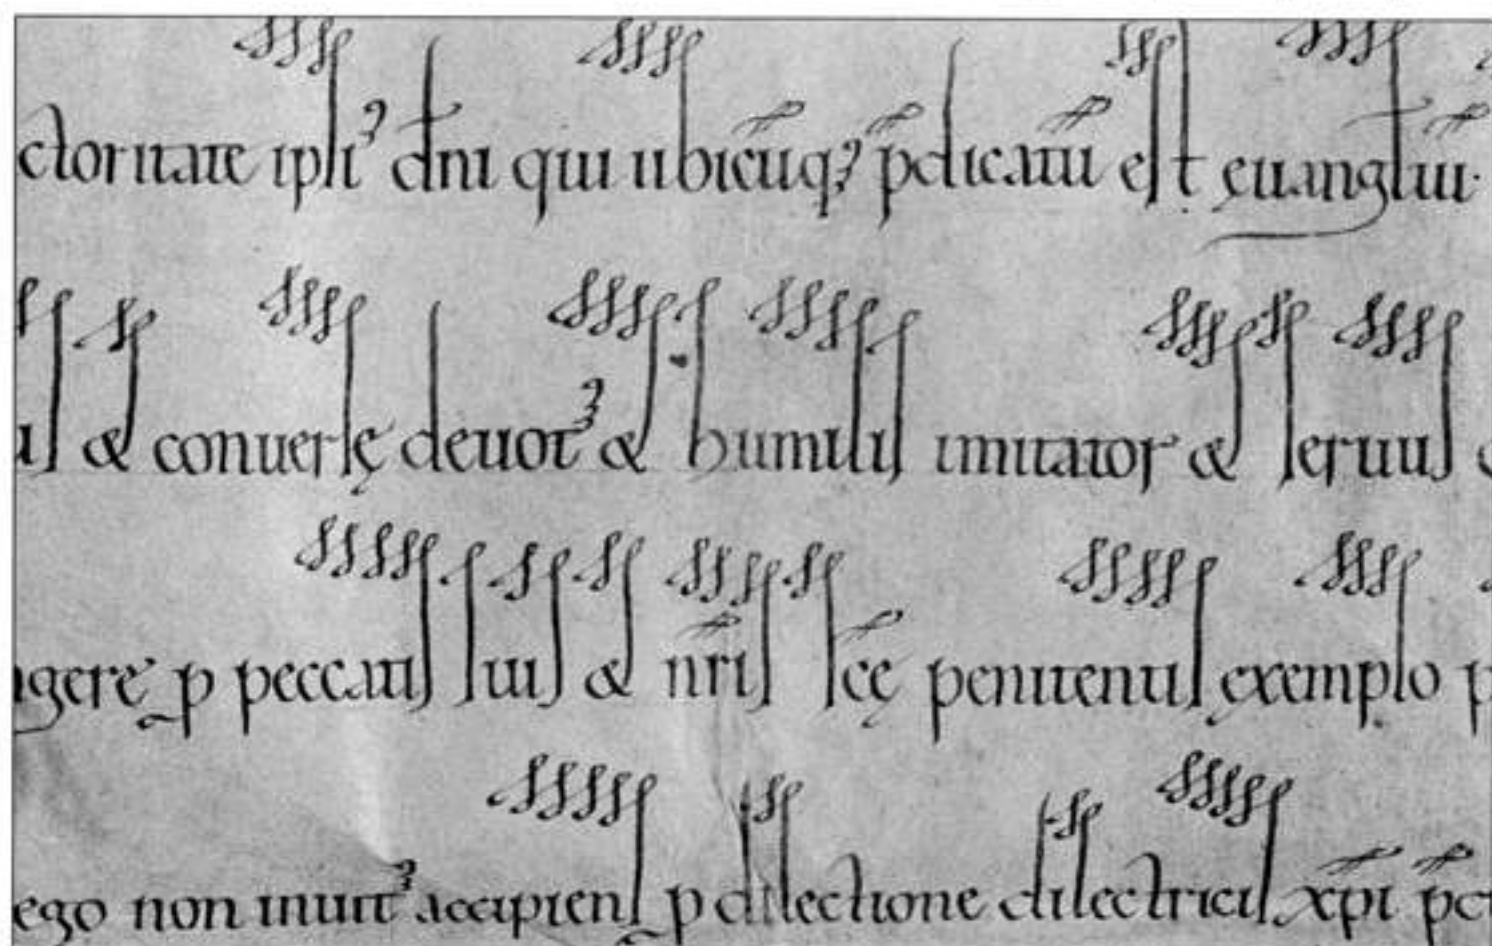 ctoritate ipſi⁹ dn̄i qui ubicūq; p̄dicatū eſt euangl̄iū·
uſ & conuerſę deuot⁹ & humiliſ imitator & ſeruuſ
ngere ꝓ peccatiſ ſuiſ & nr̄iſ ſc̄ę penitentiſ exemplo
ego non inuit⁹ accipienſ ꝓ dilectione dilectriciſ xp̄i